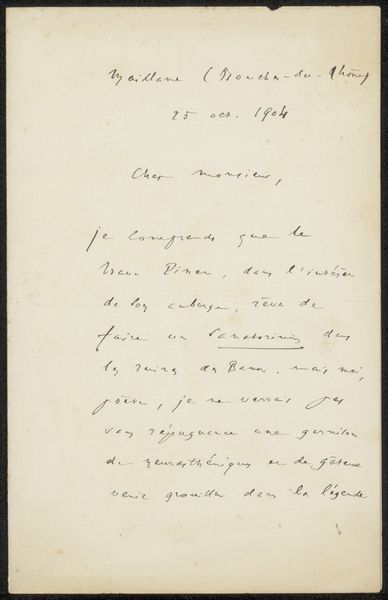 Maillane (Bouches-du-Rhône)
25 oct. 1904
Cher monsieur,
je comprends que le
brave Pinen, dans l'intérêt
de son auberge, rêve de
faire un Sanatorium dans
les ruines des Baux. mais moi,
poète, je ne verrais pas
sans répugnance une garnison
de neurasthéniques et de gâteux
venir grouiller dans la légende